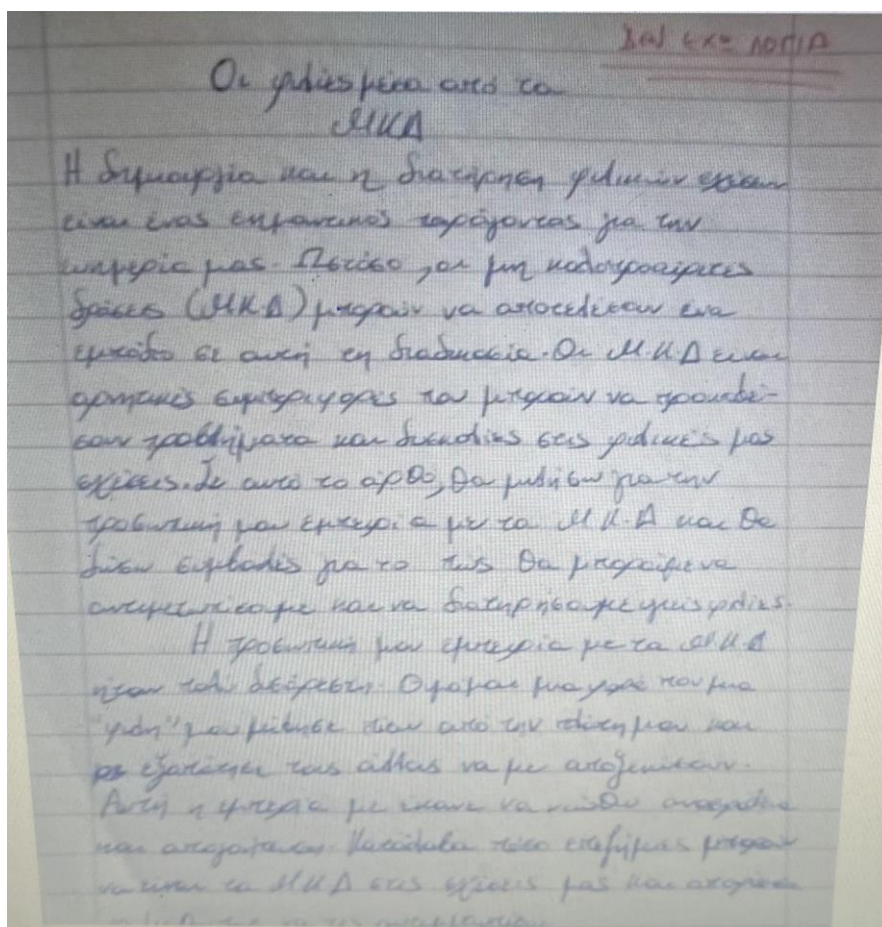 Δεν έχω λόπια
Οι φιλίες μέσα από τα
ΜΚΔ
Η δημιουργία και η διατήρηση φιλικών σχέσεων
είναι ένας σημαντικός παράγοντας για την
ευημερία μας. Ωστόσο, οι μη καλοπροαίρετες
δράσεις (ΜΚΔ) μπορούν να αποτελέσουν ένα
εμπόδιο σε αυτή τη διαδικασία. Οι Μ.Κ.Δ είναι
αρνητικές συμπεριφορές που μπορούν να προκαλέ-
σουν προβλήματα και δυσκολίες στις φιλικές μας
σχέσεις. Σε αυτό το άρθο, θα μιλήσω για την
προσωπική μου εμπειρία με τα Μ.Κ.Δ και θα
δώσω συμβουλές για το πως θα μπορούμε να
αντιμετωπίσουμε και να διατηρήσουμε υγιείς φιλίες.
Η προσωπική μου εμπειρία με τα ΜΚΔ
ήταν πολύ δυσάρεστη. Θυμάμαι μια φορά που μια
"φίλη" μου μίλησε πίσω από την πλάτη μου και
εξαπάτησε τους άλλους να με απομονώσουν.
Αυτή η εμπειρία με έκανε να νιώθω
και απογοήτευση. Κατάλαβα πόσο επιζήμιες μπορούν
να είναι τα ΜΚΔ στις σχέσεις μας και
να τις